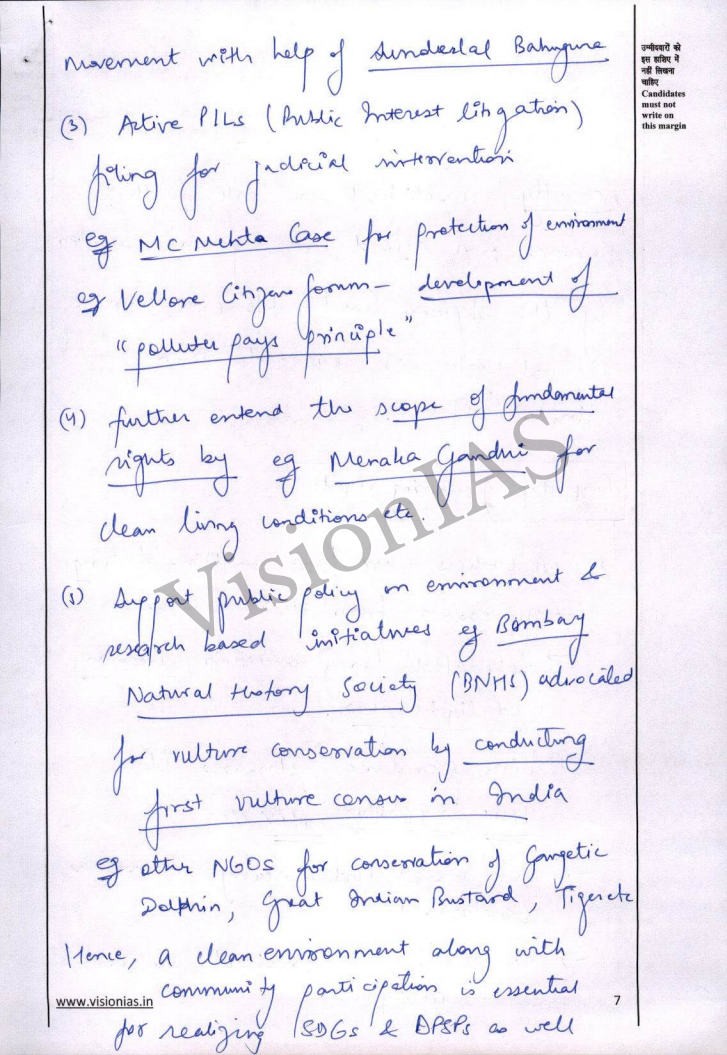 movement with help of Sunderlal Bahuguna
(3) Active PILs (Public Interest litigation)
filing for judicial intervention
eg MC Mehta Case for protection of environment
eg Vellore Citizens forum - development of
"polluter pays principle"
(4) further extend the scope of fundamental
rights by eg Menaka Gandhi for
clean living conditions etc.
(5) Support public policy on environment &
research based initiatives eg Bombay
Natural History Society (BNHS) advocated
for vulture conservation by conducting
first vulture census in India
eg other NGOs for conservation of Gangetic
Dolphin, Great Indian Bustard, Tiger etc
Hence, a clean environment along with
community participation is essential
for realizing SDGs & DPSPs as well
उम्मीदवारों को
इस हाशिए में
नहीं लिखना
चाहिए
Candidates
must not
write on
this margin
VisionIAS
www.visionias.in
7